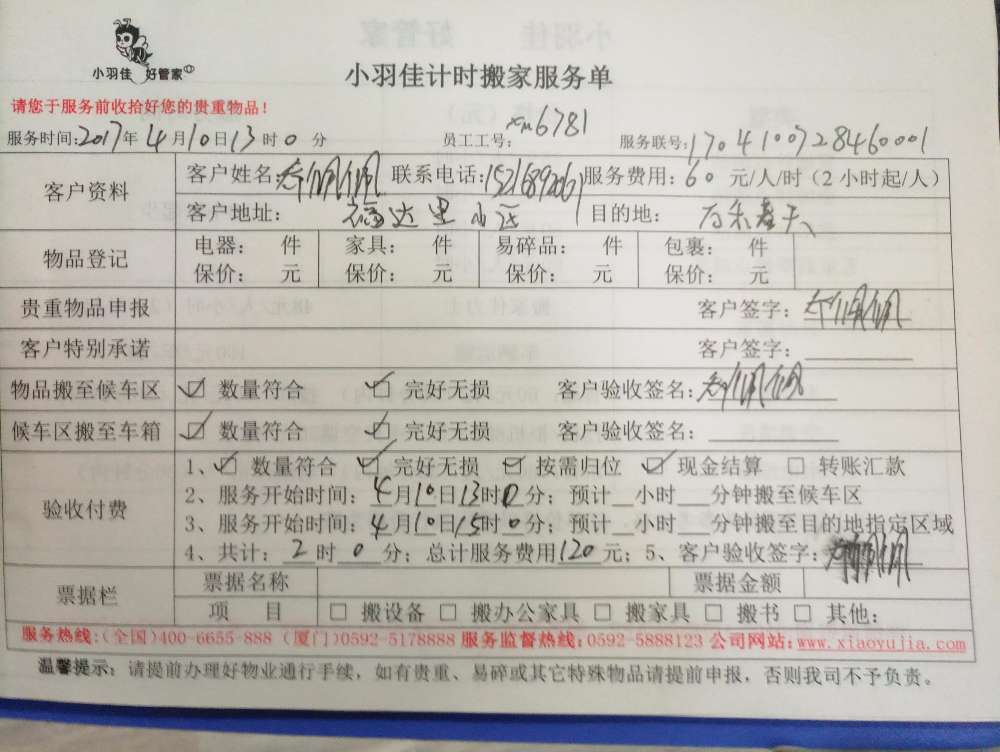 小羽佳 好管家
小羽佳计时搬家服务单
请您于服务前收拾好您的贵重物品！
服务时间:2017年4月10日13时0分 员工工号: xm6781 服务联号:1704100728460001
客户资料 客户姓名: 联系电话: 服务费用:60元/人/时（2小时起/人）
客户地址: 福达里小区 目的地:
物品登记 电器: 件 家具: 件 易碎品: 件 包裹: 件
保价: 元 保价: 元 保价: 元 保价: 元
贵重物品申报 客户签字:
客户特别承诺 客户签字:
物品搬至候车区 ☑ 数量符合 ☑ 完好无损 客户验收签名:
候车区搬至车箱 ☑ 数量符合 ☑ 完好无损 客户验收签名:
验收付费 1、☑ 数量符合 ☑ 完好无损 ☑ 按需归位 ☑ 现金结算 □ 转账汇款
2、服务开始时间: 4月10日13时0分; 预计__小时__分钟搬至候车区
3、服务开始时间: 4月10日15时0分; 预计__小时__分钟搬至目的地指定区域
4、共计: 2时0分; 总计服务费用120元; 5、客户验收签字:
票据栏 票据名称 票据金额
项 目 □ 搬设备 □ 搬办公家具 □ 搬家具 □ 搬书 □ 其他:
服务热线:(全国)400-6655-888 (厦门)0592-5178888 服务监督热线:0592-5888123 公司网站:www.xiaoyujia.com
温馨提示: 请提前办理好物业通行手续，如有贵重、易碎或其它特殊物品请提前申报，否则我司不予负责。